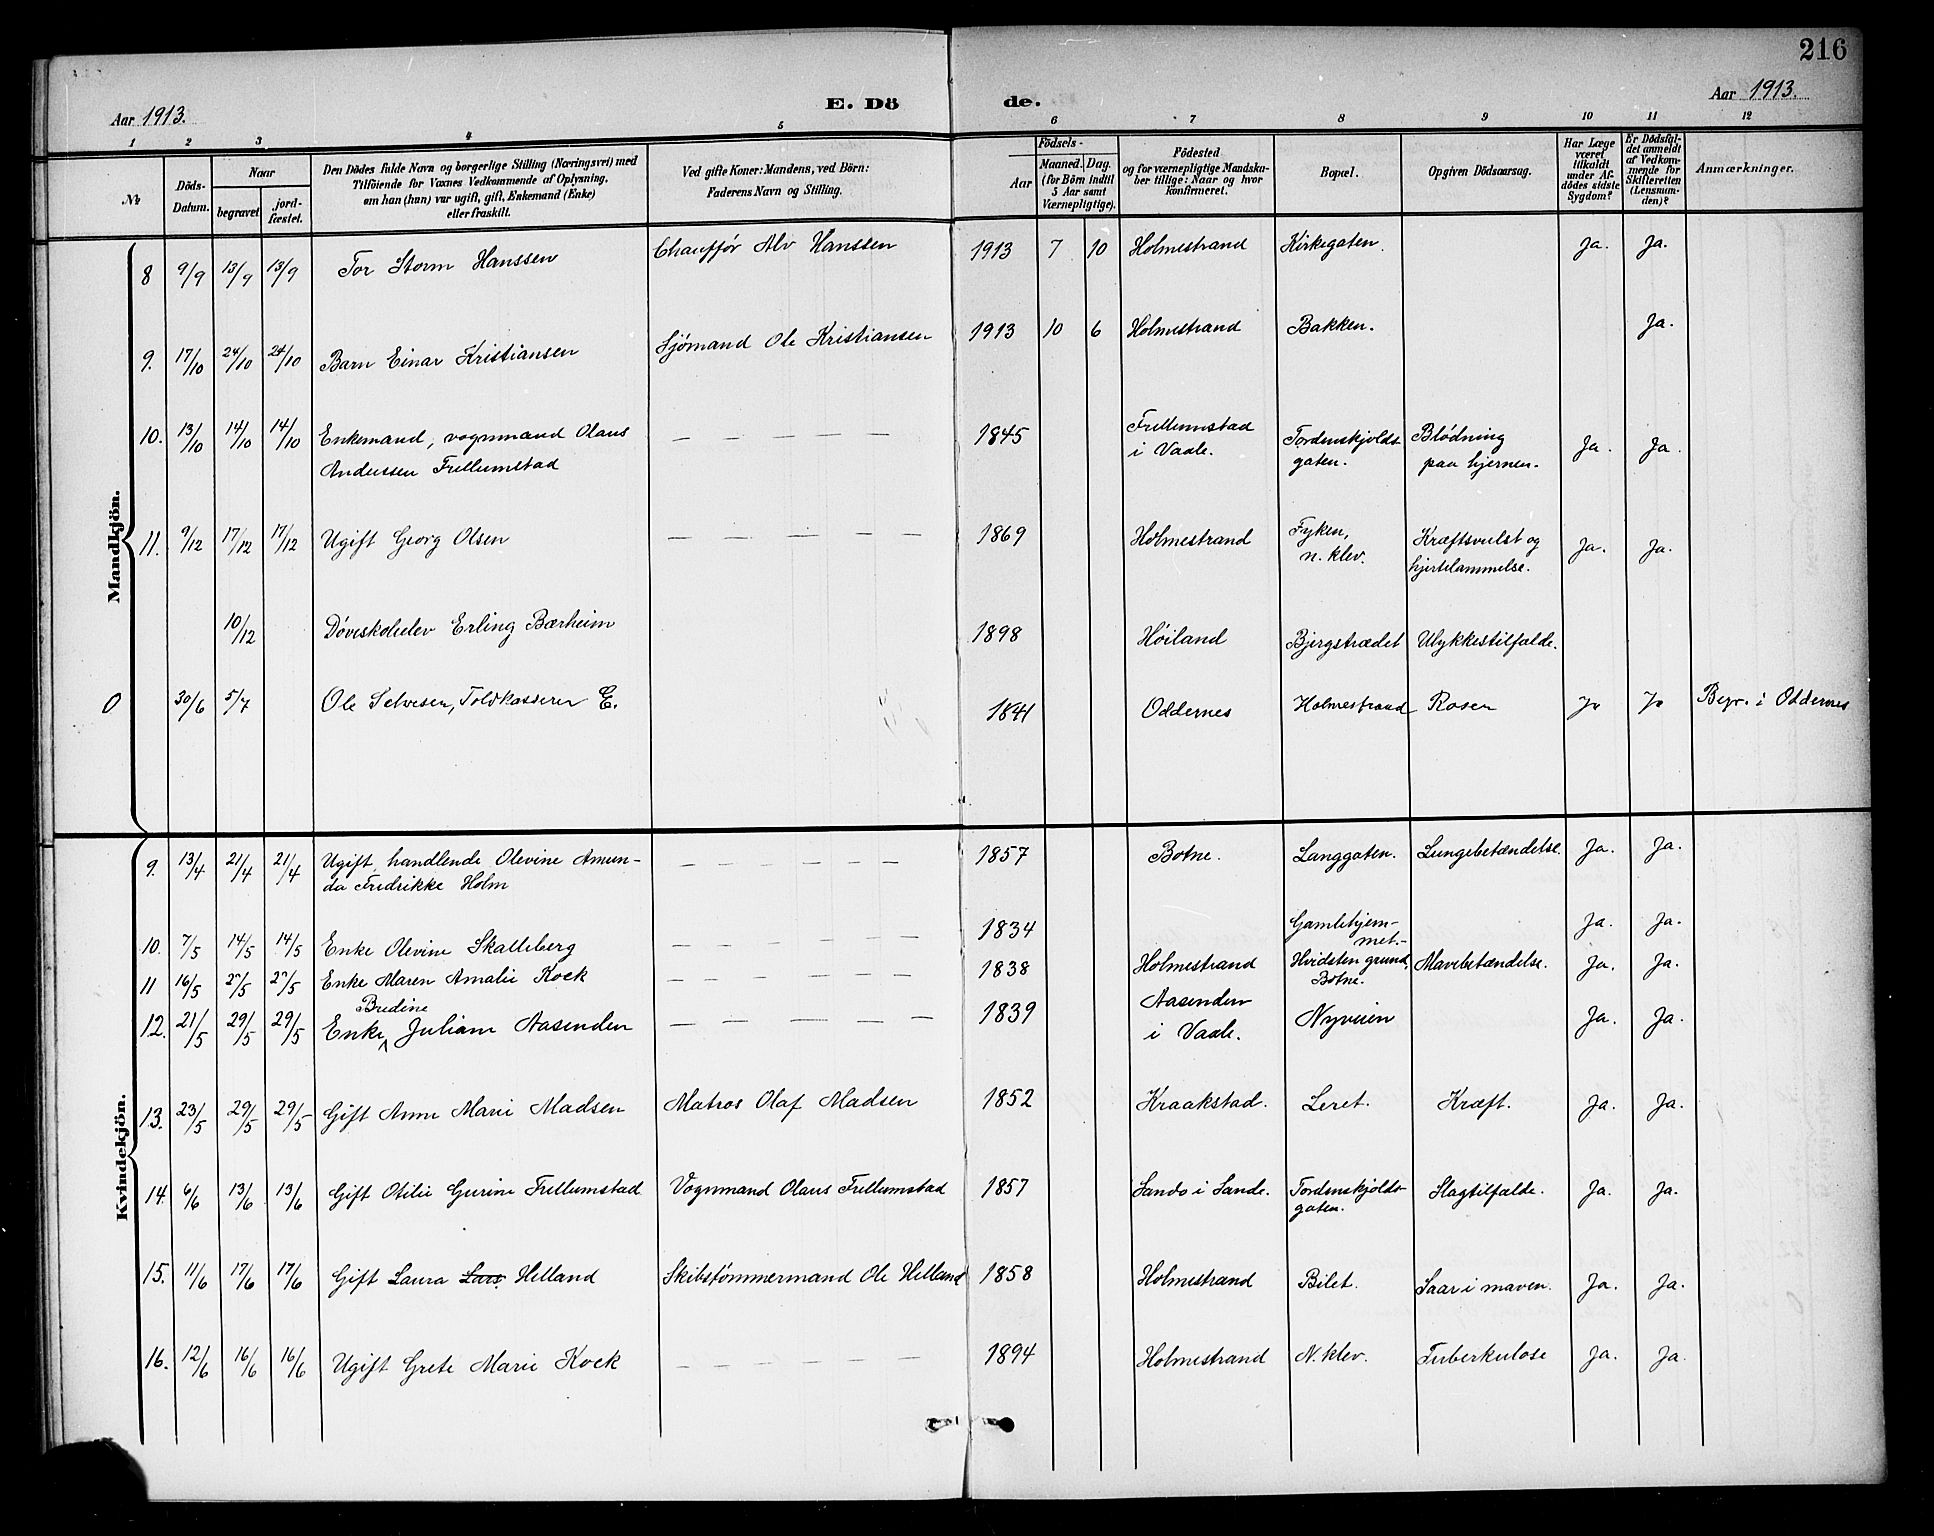 216
Aar 1913.
E. Dö de.
Aar 1913.
1 2 3 4 5 6 7 8 9 10 11 12
No
Döds-Datum.
Naar
begravet
jord-fæstet.
Den Dödes fulde Navn og borgerlige Stilling (Næringsvei) med
Tilföiende for Voxnes Vedkommende af Oplysning,
om han (hun) var ugift, gift, Enkemand (Enke)
eller fraskilt.
Ved gifte Koner: Mandens, ved Börn:
Faderens Navn og Stilling.
Födsels-
Aar
Maaned. Dag.
(for Börn indtil
5 Aar samt
Værnepligtige).
Födested
og for værnepligtige Mandska-
ber tillige: Naar og hvor
konfirmeret.
Bopæl.
Opgiven Dödsaarsag.
Har Læge
været
tilkaldt
under Af-
dödes sidste
Sygdom?
Er Dödsfal-
det anmeldt
af Vedkom-
mende for
Skifteretten
(Lensman-
den)?
Anmærkninger.
Mandkjön.
8 9/9 13/9 13/9 Tor Storm Hanssen Chauffør Alv Hanssen 1913 7 10 Holmestrand Kirkegaten. Ja. Ja.
9. 17/10 24/10 24/10 Barn Einar Kristiansen Sjømand Ole Kristiansen 1913 10 6 Holmestrand Bakken. Ja.
10. 13/10 14/10 14/10 Enkemand, vognmand Olaus — — — — — 1845 Frellumstad Tordenskjolds Blødning Ja. Ja.
Anderssen Frellumstad i Vaale. gaten. paa hjernen.
11. 9/12 17/12 17/12 Ugift Georg Olsen — — — — — — 1869 Holmestrand Fyken, Kræftsvulst og Ja. Ja.
n. klev. hjertelammelse.
10/12 Døveskoleelev Erling Bærheim 1898 Høiland Bjergstrædet Ulykkestilfælde.
0 30/6 5/7 Ole Selvesen, Toldkasserer E. 1841 Oddernes Holmestrand Rosen Ja Ja Begr. i Oddernes
Kvindekjön.
9. 13/4 21/4 21/4 Ugift handlende Olevine Amun- — — — — — — 1857 Botne. Langgaten. Lungebetændelse. Ja. Ja.
da Fredrikke Holm
10. 7/5 14/5 14/5 Enke Olevine Skalleberg — — — — — — 1834 Gamlehjem- Ja. Ja.
met.-
11 16/5 /5 /5 Enke Maren Amalie Kock — — — — — — 1838 Holmestrand Hvidsten grund, Mavebetændelse. Ja. Ja.
Botne.
Bredine
12. 21/5 29/5 29/5 Enke Juliane Aasenden — — — — — — 1839 Aasenden Nyveien Ja. Ja.
i Vaale.
13. 23/5 29/5 29/5 Gift Anne Marie Madsen Matros Olaf Madsen 1852 Kraakstad. Leret. Kræft. Ja. Ja.
14. 6/6 13/6 13/6 Gift Otilie Gurine Frellumstad Vognmand Olaus Frellumstad 1857 Sando i Sande. Tordenskjolds- Slagtilfælde. Ja. Ja.
gaten.
15. 11/6 17/6 17/6 Gift Laura Lars. Helland Skibstømmermand Ole Helland 1858 Holmestrand Bilet. Saar i maven. Ja. Ja.
16. 12/6 16/6 16/6 Ugift Grete Marie Kock — — — — — — 1894 Holmestrand N. klev. Tuberkulose Ja. Ja.